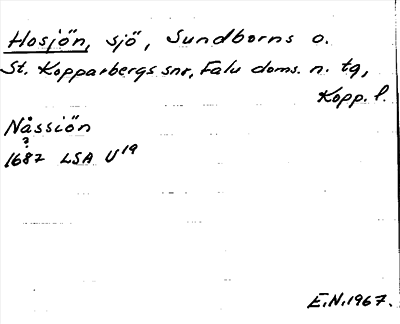 Hosjön, sjö, Sundborns o.
St. Kopparbergs snr, Falu doms. n. tg,
Kopp. l.
Nåssiön
?
1687 LSA U19
E.N. 1967.